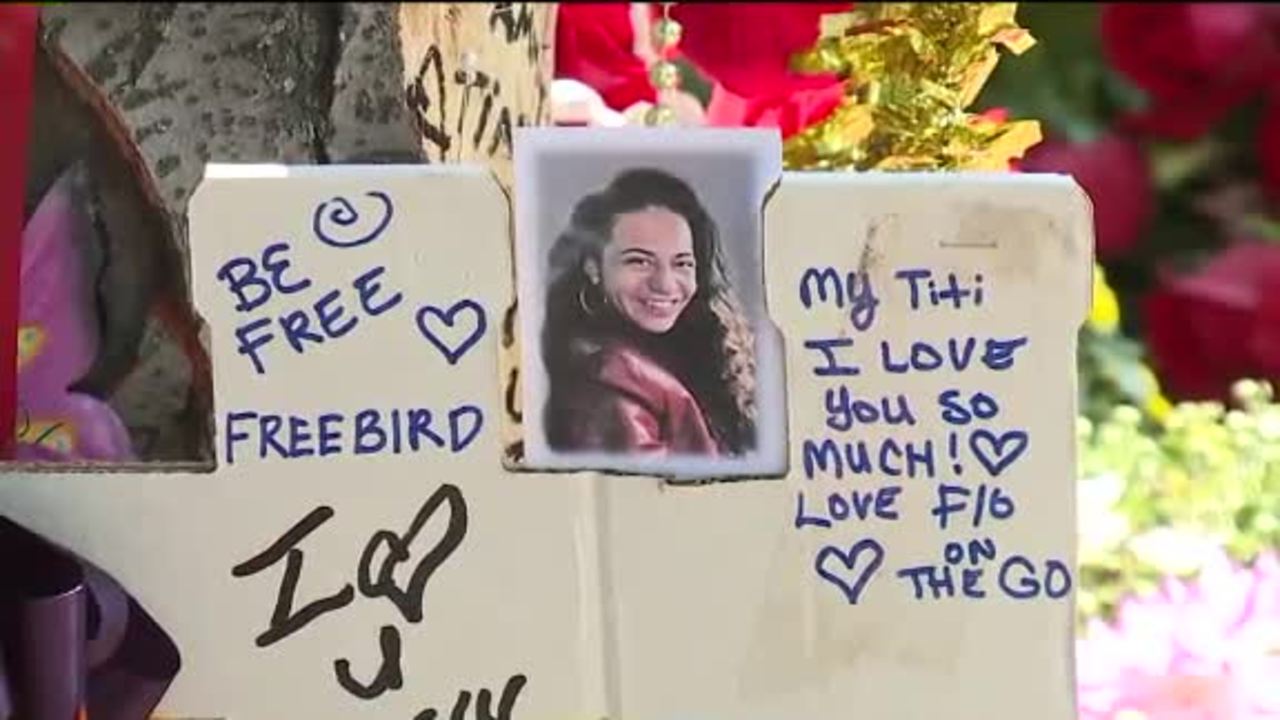 BE
FREE
FREEBIRD
I
U
My Titi
I LOVE
you so
MUCH!
LOVE F/G
ON
THE GO